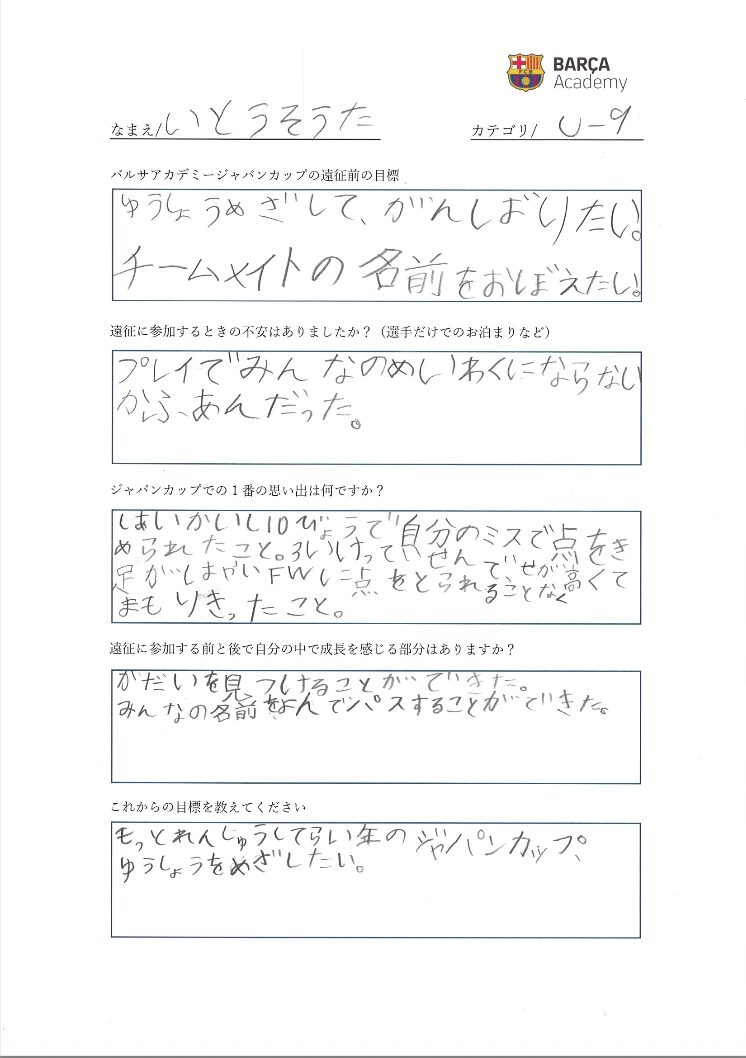 BARÇA
Academy
なまえ/いとうそうた
カテゴリ/ U-9
バルサアカデミージャパンカップの遠征前の目標
ゆうしょうめざして、がんしばりたい。
チームメイトの名前をおぼえたい。
遠征に参加するときの不安はありましたか？（選手だけでのお泊まりなど）
プレイでみんなのめいわくにならない
かふあんだった。
ジャパンカップでの１番の思い出は何ですか？
しあいかいし10びょうで自分のミスで点をき
められたこと。3いけっていせんでせが高くて
足がはやいFWに点をとられることなく
まもりきったこと。
遠征に参加する前と後で自分の中で成長を感じる部分はありますか？
かだいを見つけることができた。
みんなの名前をよんでパスすることができた。
これからの目標を教えてください
もっとれんしゅうしてらい年のジャパンカップ、
ゆうしょうをめざしたい。